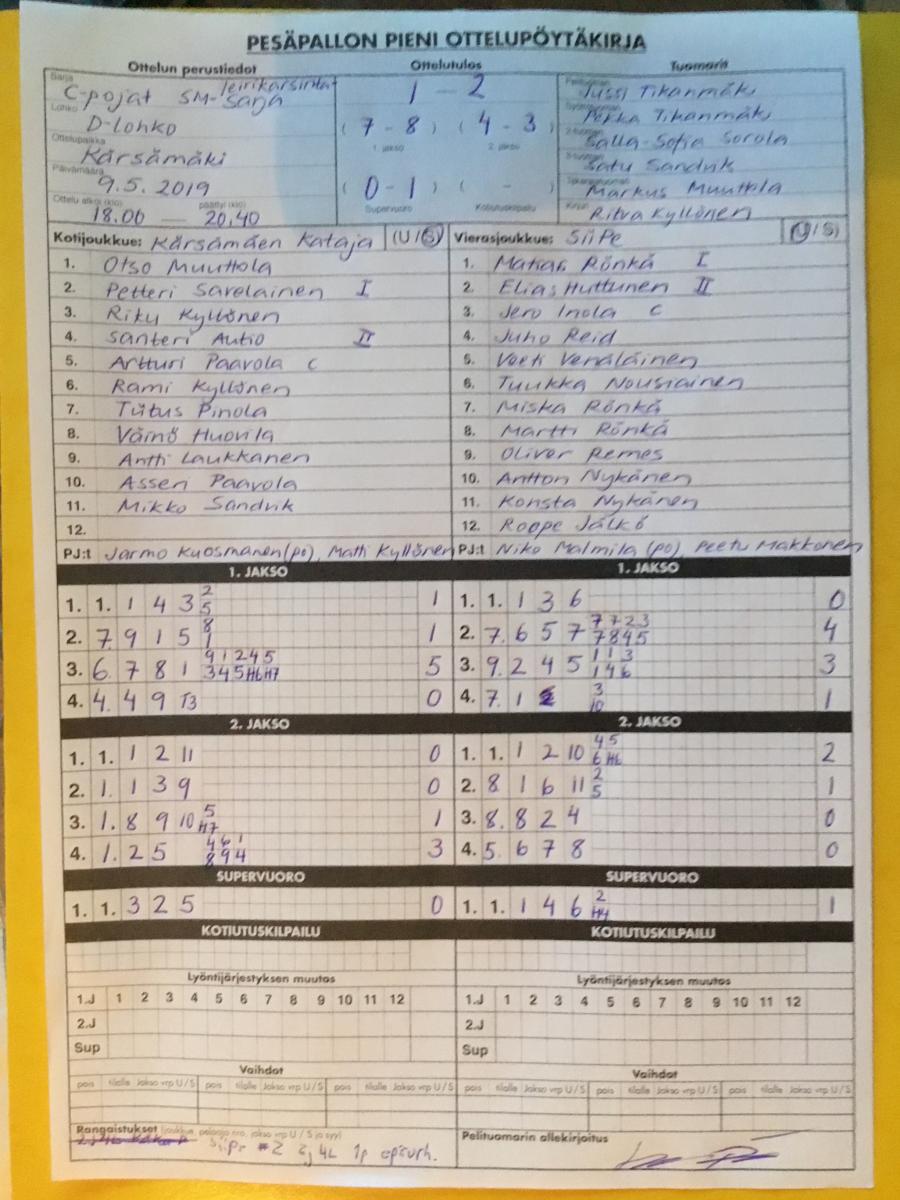 PESÄPALLON PIENI OTTELUPÖYTÄKIRJA
Ottelun perustiedot Ottelutulos Tuomarit
Sarja
C-pojat SM-leirikarsintasarja
Lohko
D-Lohko
Ottelupaikka
Kärsämäki
Päivämäärä
9.5. 2019
Ottelu alkoi (klo) päättyi (klo)
18.00 — 20.40
1 - 2
( 7 - 8 ) ( 4 - 3 )
1. jakso 2. jakso
( 0 - 1 ) ( - )
Supervuoro Kotiutuskilpailu
Jussi Tikanmäki
Pekka Tikanmäki
Salla-Sofia Sorola
Satu Sandvik
Markus Muuttola
Ritva Kyllönen
Kotijoukkue: Kärsämäen Kataja (U/S)
1. Otso Muuttola
2. Petteri Savolainen I
3. Riku Kyllönen
4. Santeri Autio II
5. Artturi Paavola C
6. Rami Kyllönen
7. Tiitus Pinola
8. Väinö Huovila
9. Antti Laukkanen
10. Asseri Paavola
11. Mikko Sandvik
12.
PJ:t Jarmo Kuosmanen (po), Matti Kyllönen
Vierasjoukkue: SiiPe (U/S)
1. Matias Rönkä I
2. Elias Huttunen II
3. Jero Inola C
4. Juho Reid
5. Veeti Venäläinen
6. Tuukka Nousiainen
7. Miska Rönkä
8. Martti Rönkä
9. Oliver Remes
10. Antton Nykänen
11. Konsta Nykänen
12. Roope Jälkö
PJ:t Niko Malmila (po), Peetu Makkonen
1. JAKSO
1. 1. 1 4 3 2 5 1
2. 7. 9 1 5 8 1 1
3. 6. 7 8 1 9 1 2 4 5 3 4 5 H6 H7 5
4. 4. 4 9 T3 0
1. JAKSO
1. 1. 1 3 6 0
2. 7. 6 5 7 7 7 2 3 7 8 4 5 4
3. 9. 2 4 5 1 1 3 1 4 6 3
4. 7. 1 3 10 1
2. JAKSO
1. 1. 1 2 11 0
2. 1. 1 3 9 0
3. 1. 8 9 10 5 H7 1
4. 1. 2 5 4 6 1 8 9 4 3
2. JAKSO
1. 1. 1 2 10 4 5 6 H6 2
2. 8 1 6 11 2 5 1
3. 8. 8 2 4 0
4. 5. 6 7 8 0
SUPERVUORO
1. 1. 3 2 5 0
SUPERVUORO
1. 1. 1 4 6 2 H4 1
KOTIUTUSKILPAILU KOTIUTUSKILPAILU
Lyöntijärjestyksen muutos Lyöntijärjestyksen muutos
1.J 1 2 3 4 5 6 7 8 9 10 11 12 1.J 1 2 3 4 5 6 7 8 9 10 11 12
2.J 2.J
Sup Sup
Vaihdot Vaihdot
pois tilalle Jakso vrp U/S pois tilalle Jakso vrp U/S pois tilalle Jakso vrp U/S pois tilalle Jakso vrp U/S pois tilalle Jakso vrp U/S pois tilalle Jakso vrp U/S
Rangaistukset (joukkue, pelaaja nro, jakso vrp U/S ja syy)
SiiPe #2 2j 4L 1p epäurh.
Pelituomarin allekirjoitus